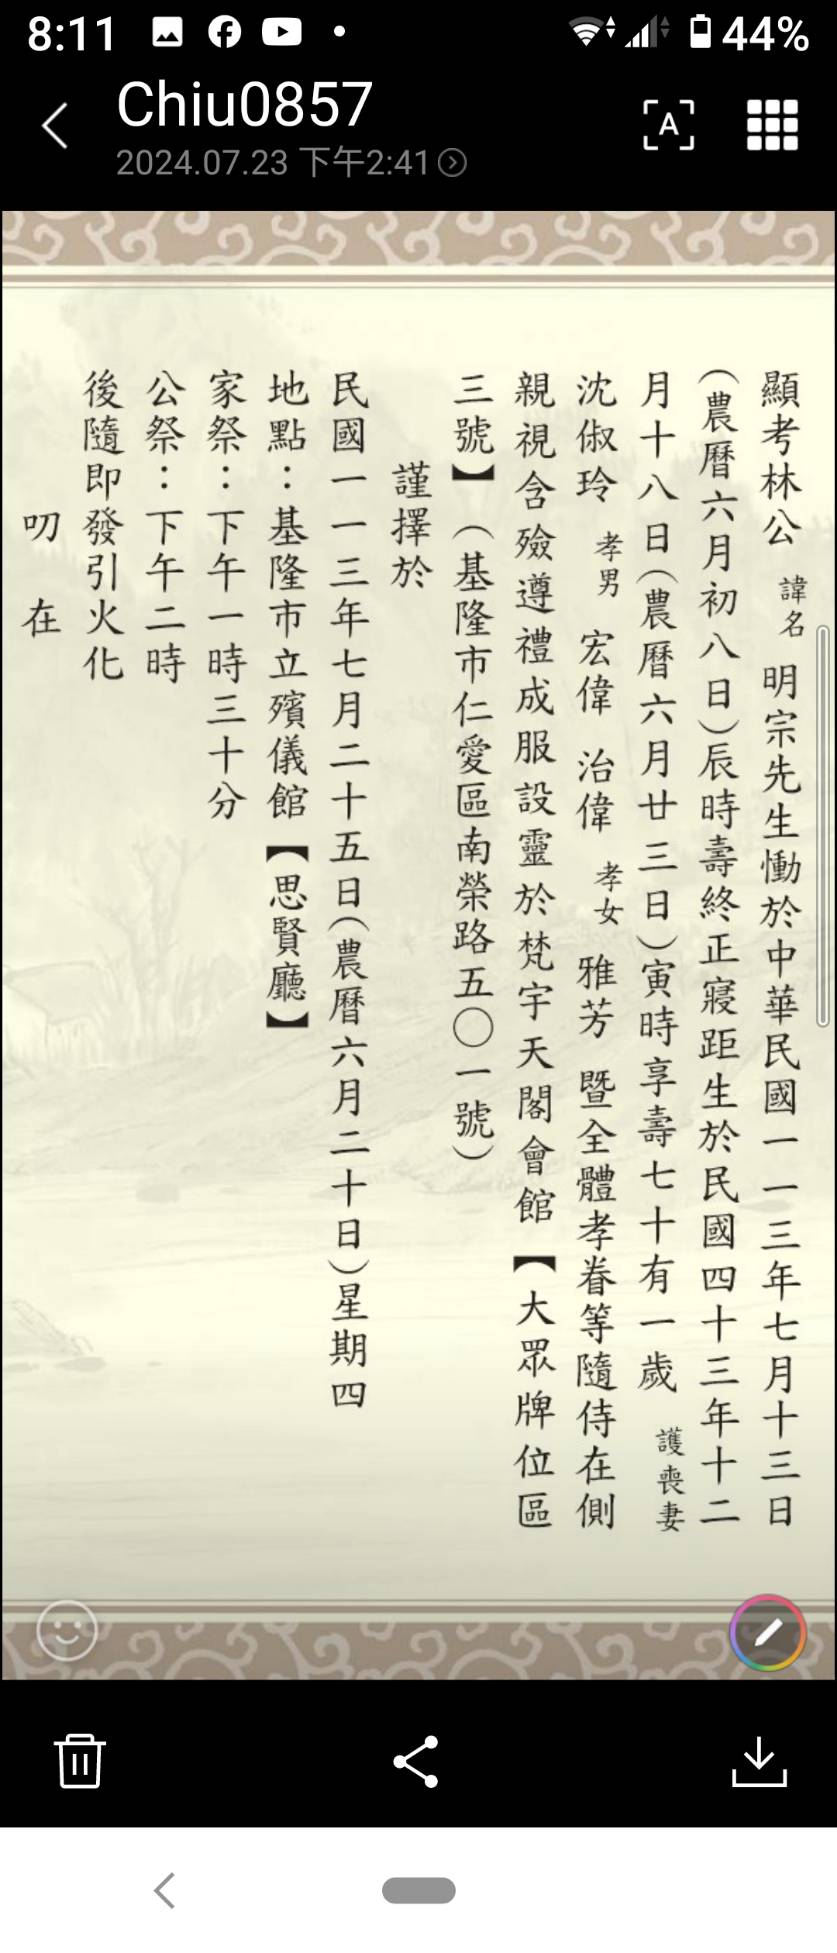 8:11
44%
Chiu0857
2024.07.23 下午2:41
A
顯考林公 諱名 明宗先生慟於中華民國一一三年七月十三日
(農曆六月初八日)辰時壽終正寢距生於民國四十三年十二
月十八日(農曆六月廿三日)寅時享壽七十有一歲 護喪妻
沈俶玲 孝男 宏偉 治偉 孝女 雅芳 暨全體孝眷等隨侍在側
親視含殮遵禮成服設靈於梵宇天閣會館【大眾牌位區
三號】(基隆市仁愛區南榮路五〇一號)
謹擇於
民國一一三年七月二十五日(農曆六月二十日)星期四
地點：基隆市立殯儀館【思賢廳】
家祭：下午一時三十分
公祭：下午二時
後隨即發引火化
叨 在